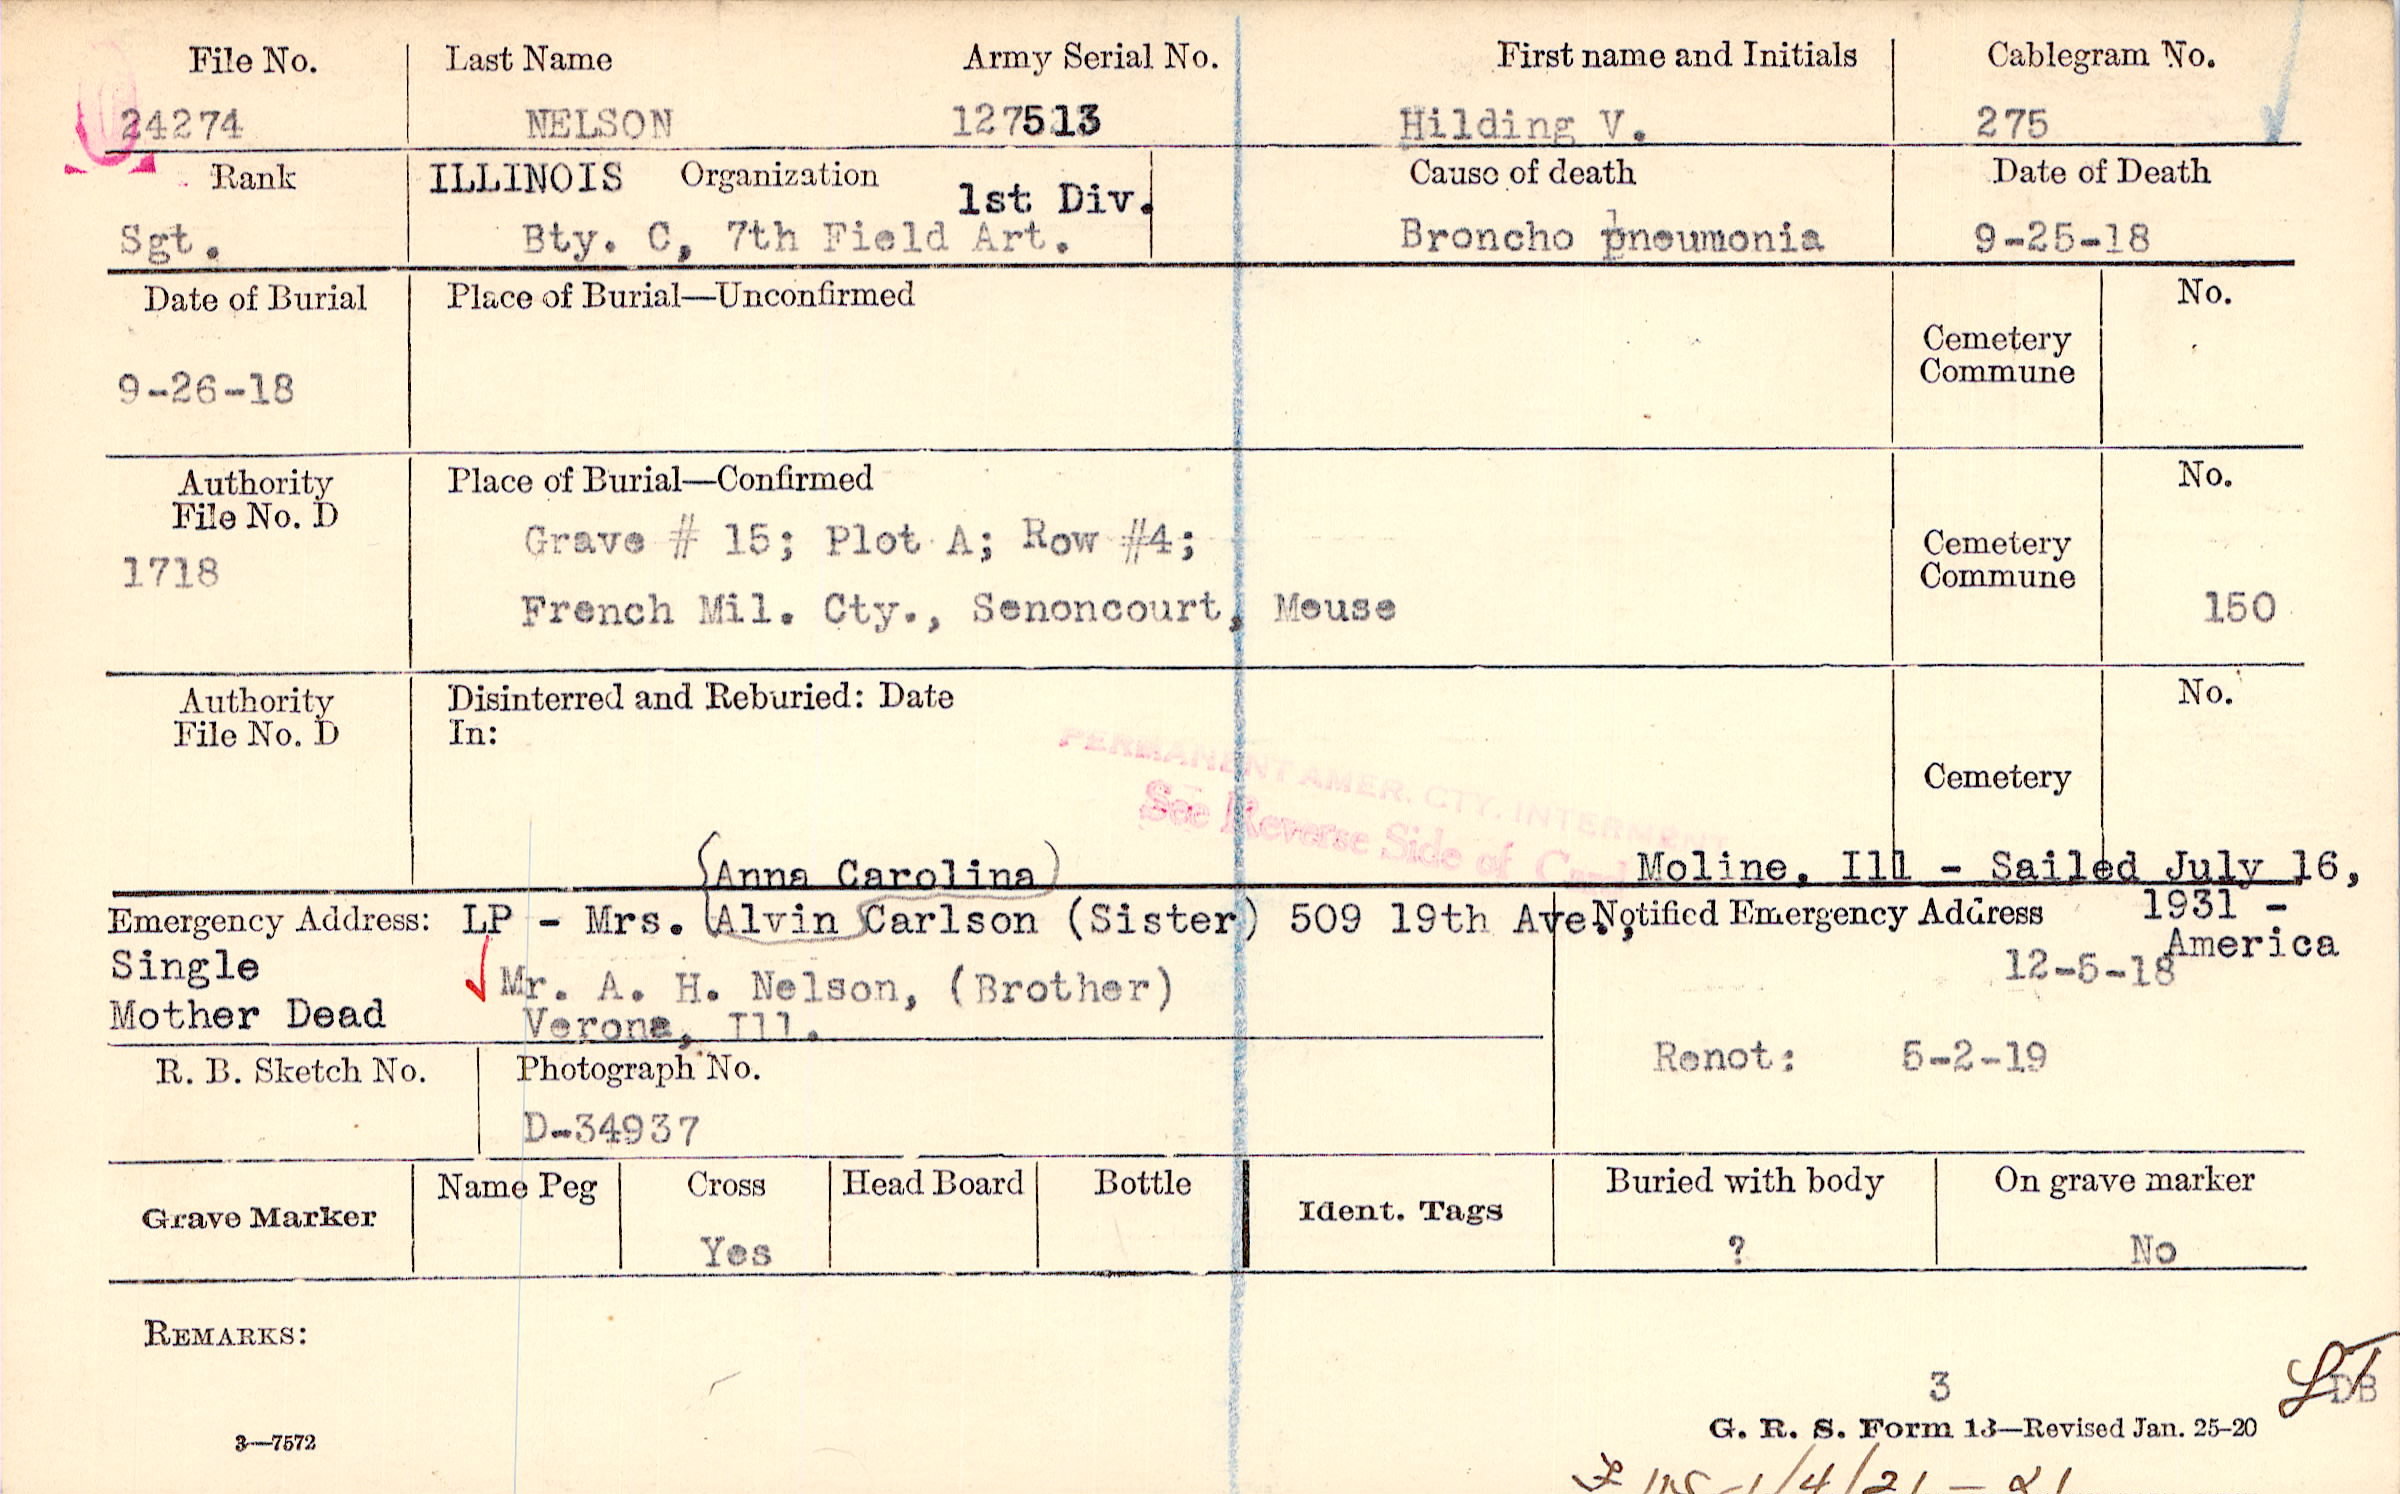 File No. Last Name Army Serial No. First name and Initials Cablegram No.
24274 NELSON 127513 Hilding V. 275
Rank ILLINOIS Organization 1st Div. Cause of death Date of Death
Sgt. Bty. C, 7th Field Art. Broncho pneumonia 9-25-18
Date of Burial Place of Burial—Unconfirmed No.
Cemetery
Commune
9-26-18
Authority Place of Burial—Confirmed No.
File No. D
Grave # 15; Plot A; Row #4; Cemetery
1718 Commune
French Mil. Cty., Senoncourt, Meuse 150
Authority Disinterred and Reburied: Date No.
File No. D In:
PERMANENT AMER. CTY. INTERMENT
Cemetery
See Reverse Side of Card
Anna Carolina Moline, Ill - Sailed July 16,
Emergency Address: LP - Mrs. Alvin Carlson (Sister) 509 19th Ave., Notified Emergency Address 1931 -
America
Single 12-5-18
Mr. A. H. Nelson, (Brother)
Mother Dead Verona, Ill.
R. B. Sketch No. Photograph No. Renot: 5-2-19
D-34937
Grave Marker Name Peg Cross Head Board Bottle Ident. Tags Buried with body On grave marker
Yes ? No
REMARKS:
3 DB
3—7572 G. R. S. Form 13—Revised Jan. 25-20